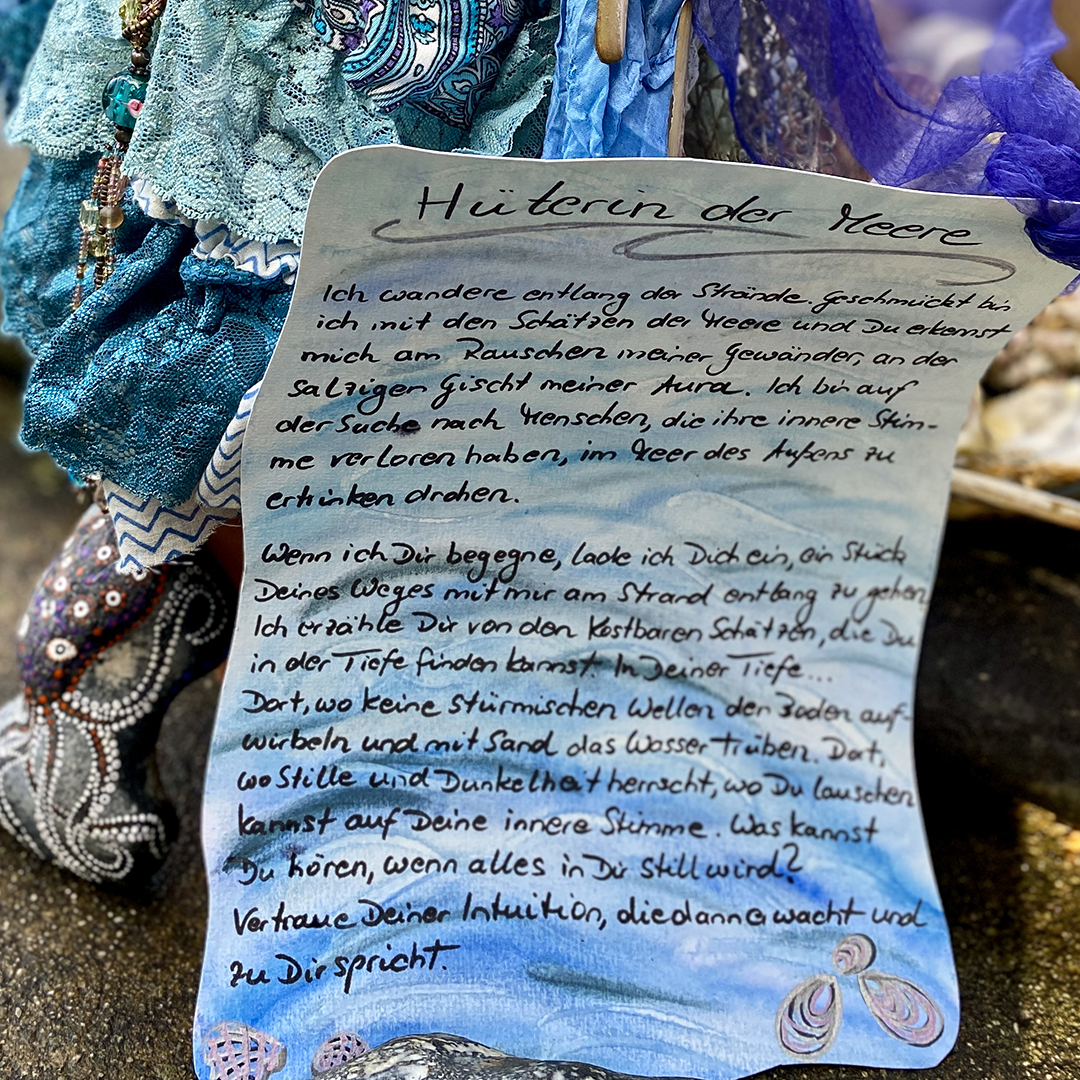 Hüterin der Meere
Ich wandere entlang der Strände. Geschmückt bin
ich mit den Schätzen der Meere und Du erkennst
mich am Rauschen meiner Gewänder, an der
salzigen Gischt meiner Aura. Ich bin auf
der Suche nach Menschen, die ihre innere Stim-
me verloren haben, im Meer des Außens zu
ertrinken drohen.
Wenn ich Dir begegne, lade ich Dich ein, ein Stück
Deines Weges mit mir am Strand entlang zu gehen.
Ich erzähle Dir von den kostbaren Schätzen, die Du
in der Tiefe finden kannst. In Deiner Tiefe...
Dort, wo keine stürmischen Wellen den Boden auf-
wirbeln und mit Sand das Wasser trüben. Dort,
wo Stille und Dunkelheit herrscht, wo Du lauschen
kannst auf Deine innere Stimme. Was kannst
Du hören, wenn alles in Dir still wird?
Vertraue Deiner Intuition, die dann erwacht und
zu Dir spricht.